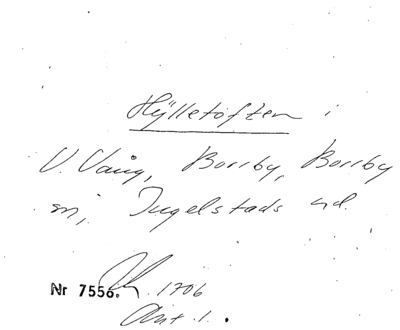 Hylletoften i
V. Vång, Borrby, Borrby
sn, Ingelstads hd.
Nr 7556. 1706
Ant. 1.